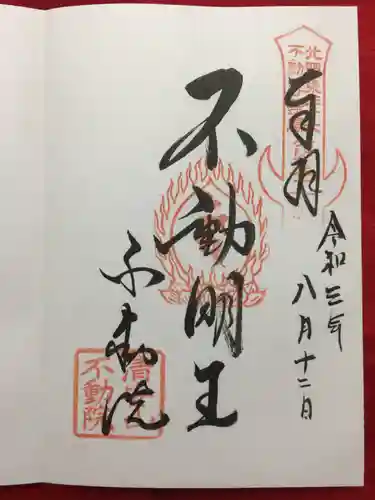 奉拝
令和三年
八月十二日
不動明王
不動院
不動院